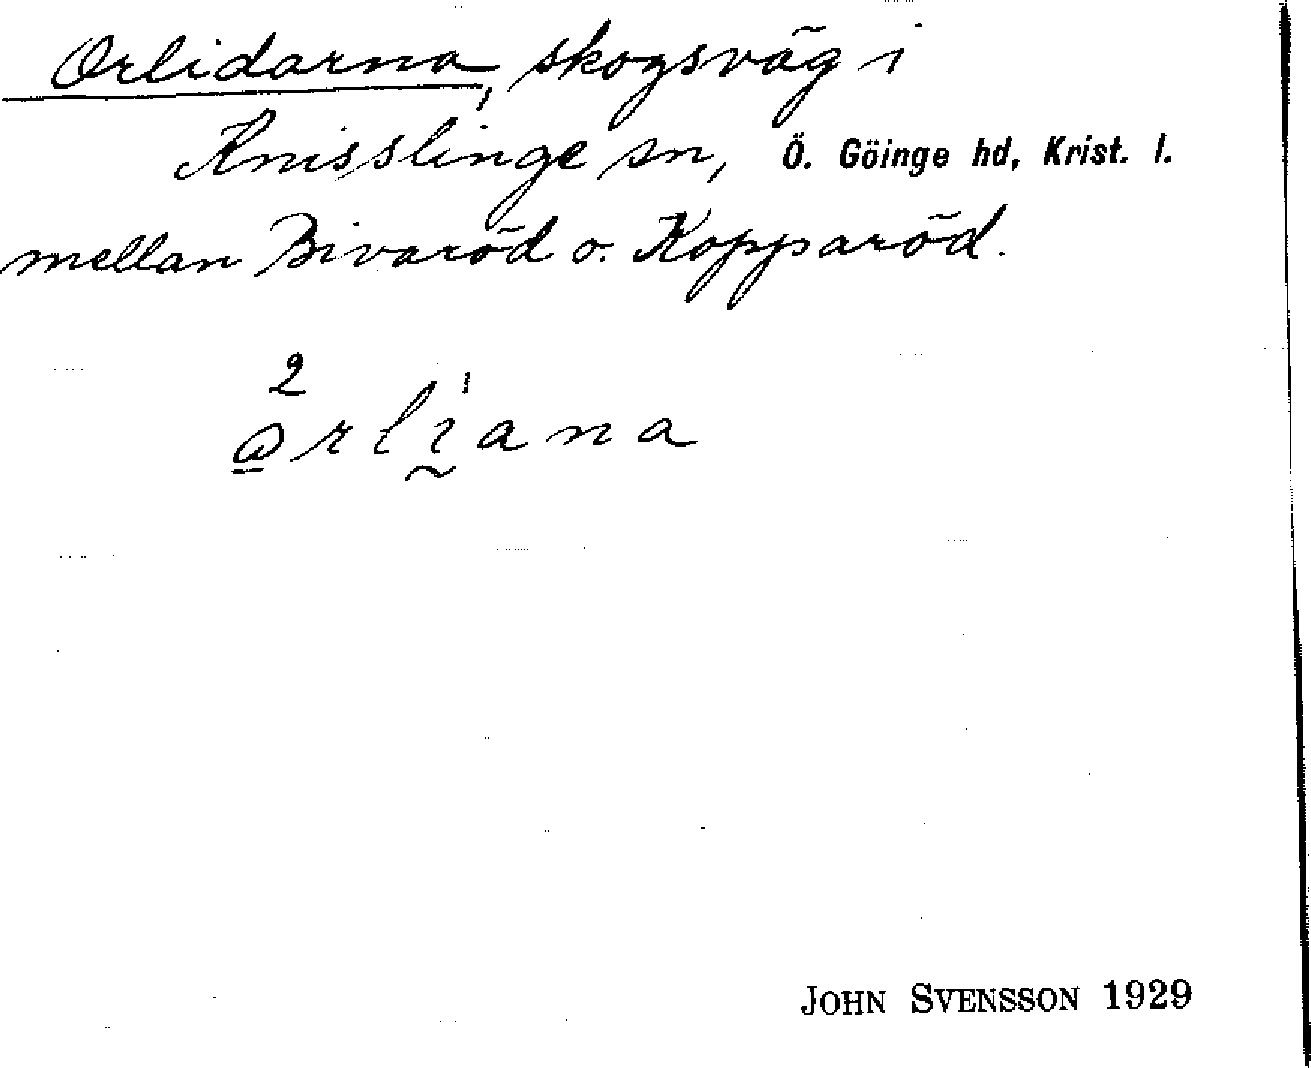 Orlidarna, skogsväg i
Knisslinge sn, Ö. Göinge hd, Krist. l.
mellan Bivaröd o. Kopparöd.
2 1
ɷrliana
JOHN SVENSSON 1929